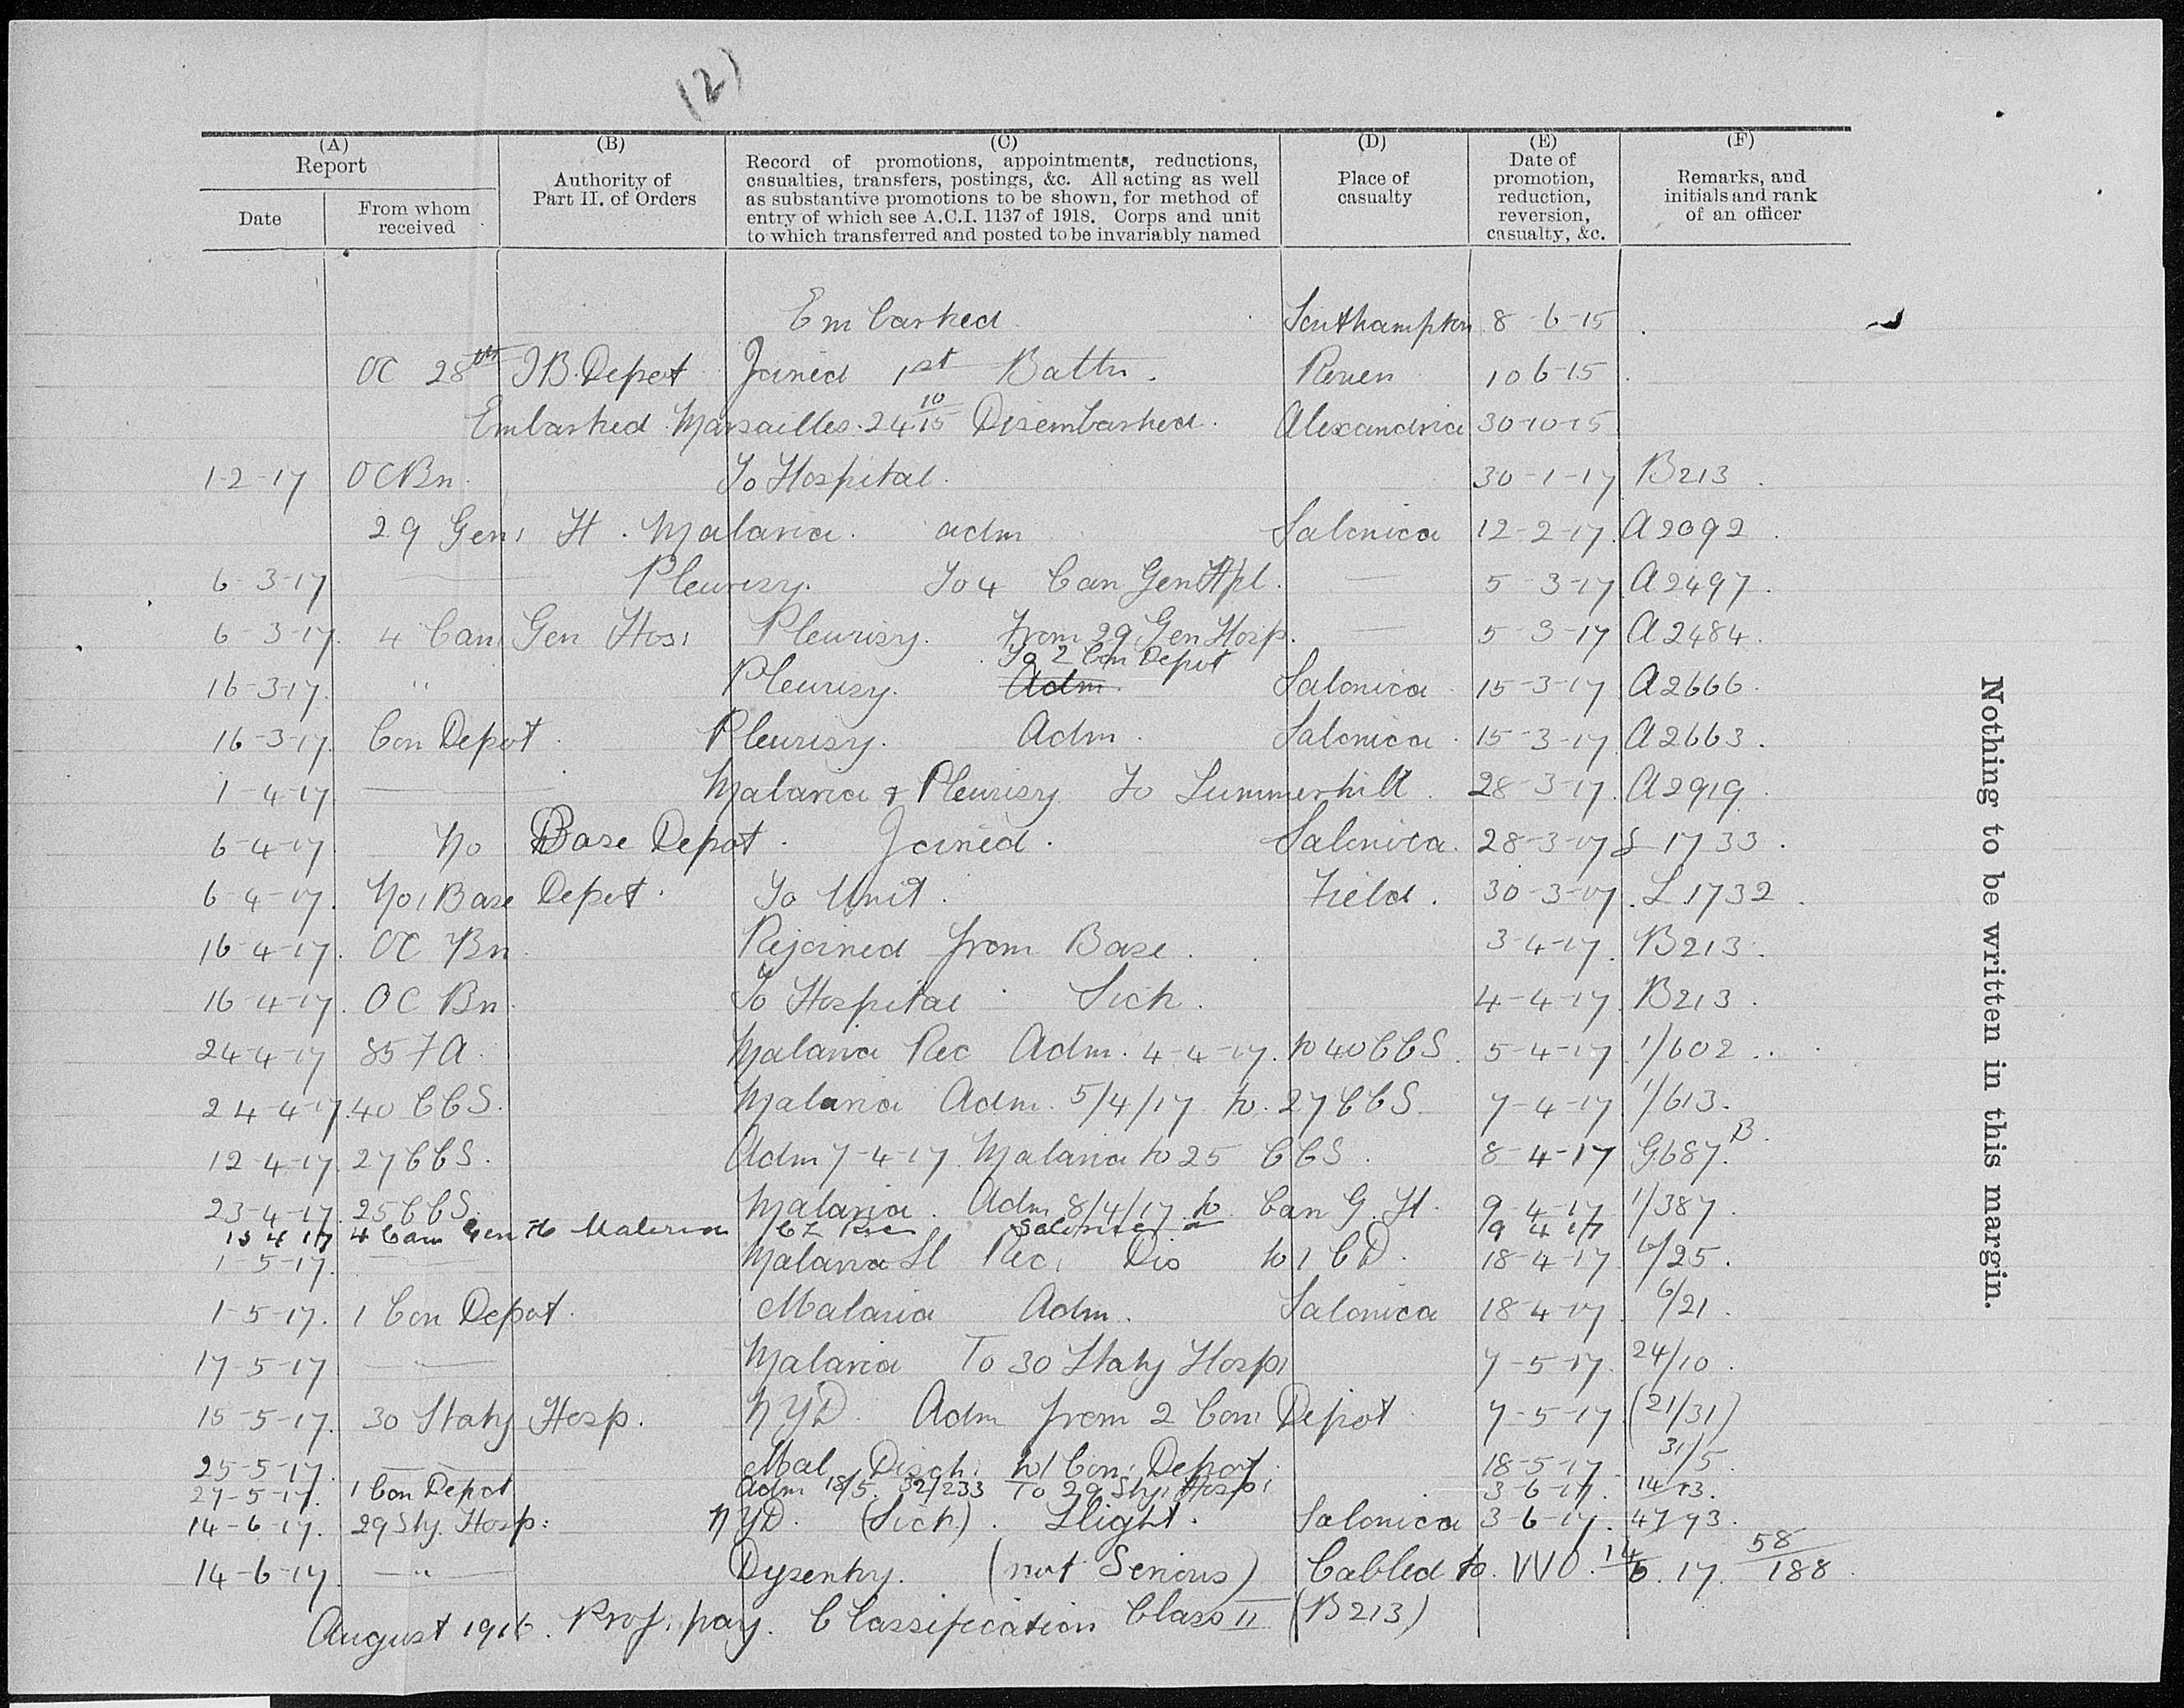 (2)
(A) (B) (C) (D) (E) (F)
Report
Date
From whom received
Authority of Part II. of Orders
Record of promotions, appointments, reductions,
casualties, transfers, postings, &c. All acting as well
as substantive promotions to be shown, for method of
entry of which see A.C.I. 1137 of 1918. Corps and unit
to which transferred and posted to be invariably named
Place of casualty
Date of promotion, reduction, reversion, casualty, &c.
Remarks, and initials and rank of an officer
Embarked Southampton 8-6-15
OC 28th IB Depot Joined 1st Battn. Rouen 10 6-15
Embarked Marsailles. 24 10/15 Disembarked. Alexandria 30-10-15
1-2-17 OC Bn. To Hospital. 30-1-17 B213.
29 Gen H. Malaria. adm Salonica 12-2-17 A2092.
6-3-17 — Pleurisy. To 4 Can Gen Hpl. — 5-3-17 A2497.
6-3-17. 4 Can Gen Hos Pleurisy. From 29 Gen Hosp. — 5-3-17 A2484.
16-3-17. " Pleurisy. Adm. To 2 Con Depot Salonica 15-3-17 A2666.
16-3-17. Con Depot. Pleurisy. Adm. Salonica. 15-3-17 A2663.
1-4-17 — Malaria & Pleurisy To Summerhill. 28-3-17. A2919.
6-4-17 No Base Depot. Joined. Salonica. 28-3-17 L 1733.
6-4-17. No 1 Base Depot. To Unit. Field. 30-3-17. L 1732.
16-4-17. OC Bn. Rejoined from Base. 3-4-17. B213.
16-4-17. OC Bn. To Hospital. Sick. 4-4-17 B213.
24-4-17 85 FA. Malaria Rec Adm. 4-4-17. to 40 CCS. 5-4-17 1/602..
24-4-17. 40 CCS. Malaria Adm. 5/4/17 to. 27 CCS 7-4-17 1/613.
12-4-17. 27 CCS. Adm 7-4-17. Malaria to 25 CCS. 8-4-17 G687. B.
23-4-17. 25 CCS. Malaria. Adm 8/4/17 to Can G. H. 9-4-17 1/387.
15 4 17 4 Can Gen H Malaria Rec Salonica 9 4 17
1-5-17. — Malaria Sl Rec. Dis to 1 CD. 18-4-17 6/25.
1-5-17. 1 Con Depot. Malaria Adm. Salonica 18-4-17 6/21.
17-5-17 — Malaria To 30 Staty Hosp 7-5-17. 24/10.
15-5-17. 30 Staty Hosp. NYD. Adm from 2 Con Depot 7-5-17 (21/31)
25-5-17. — Mal Disch. to 1 Con. Depot. 18-5-17 31/5.
27-5-17. 1 Con Depot Adm 18/5. 32/233 To 29 Sty. Hosp. 3-6-17. 14 13.
14-6-17. 29 Sty. Hosp: NYD. (Sick). Slight. Salonica 3-6-17. 47 93.
14-6-17. —"— Dysentry. (not Serious) Cabled to. WO. 14/6. 17. 58/188.
August 1916. Prof. pay. Classification Class II (B213)
Nothing to be written in this margin.